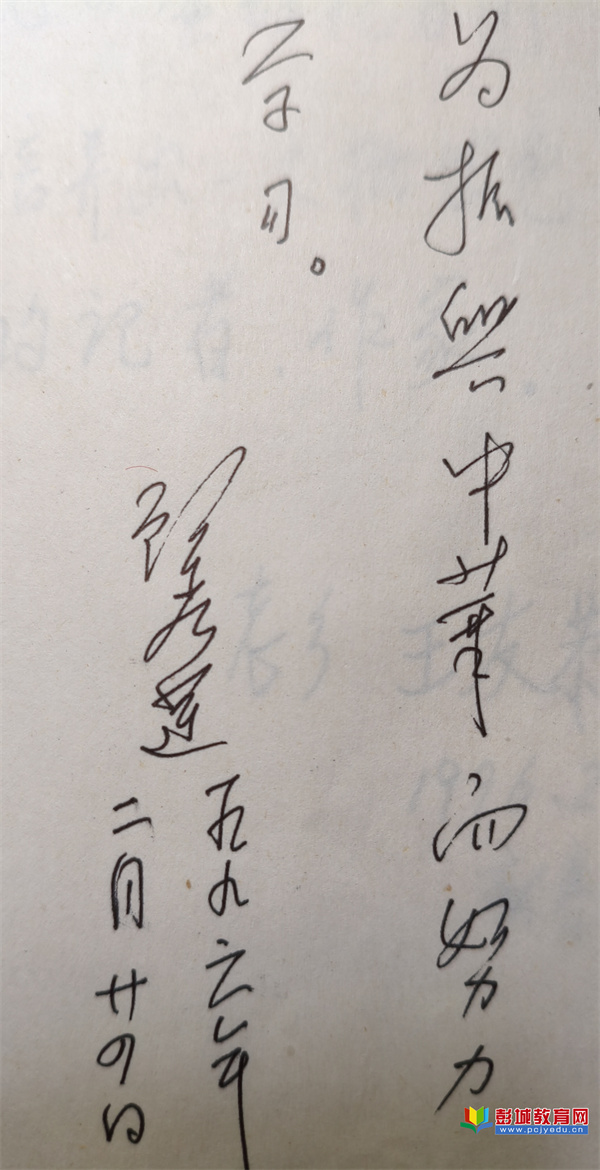 为振興中華而努力
学习。
顾秀莲
一九九六年
二月廿四日
彭城教育网
www.pcjyedu.cn